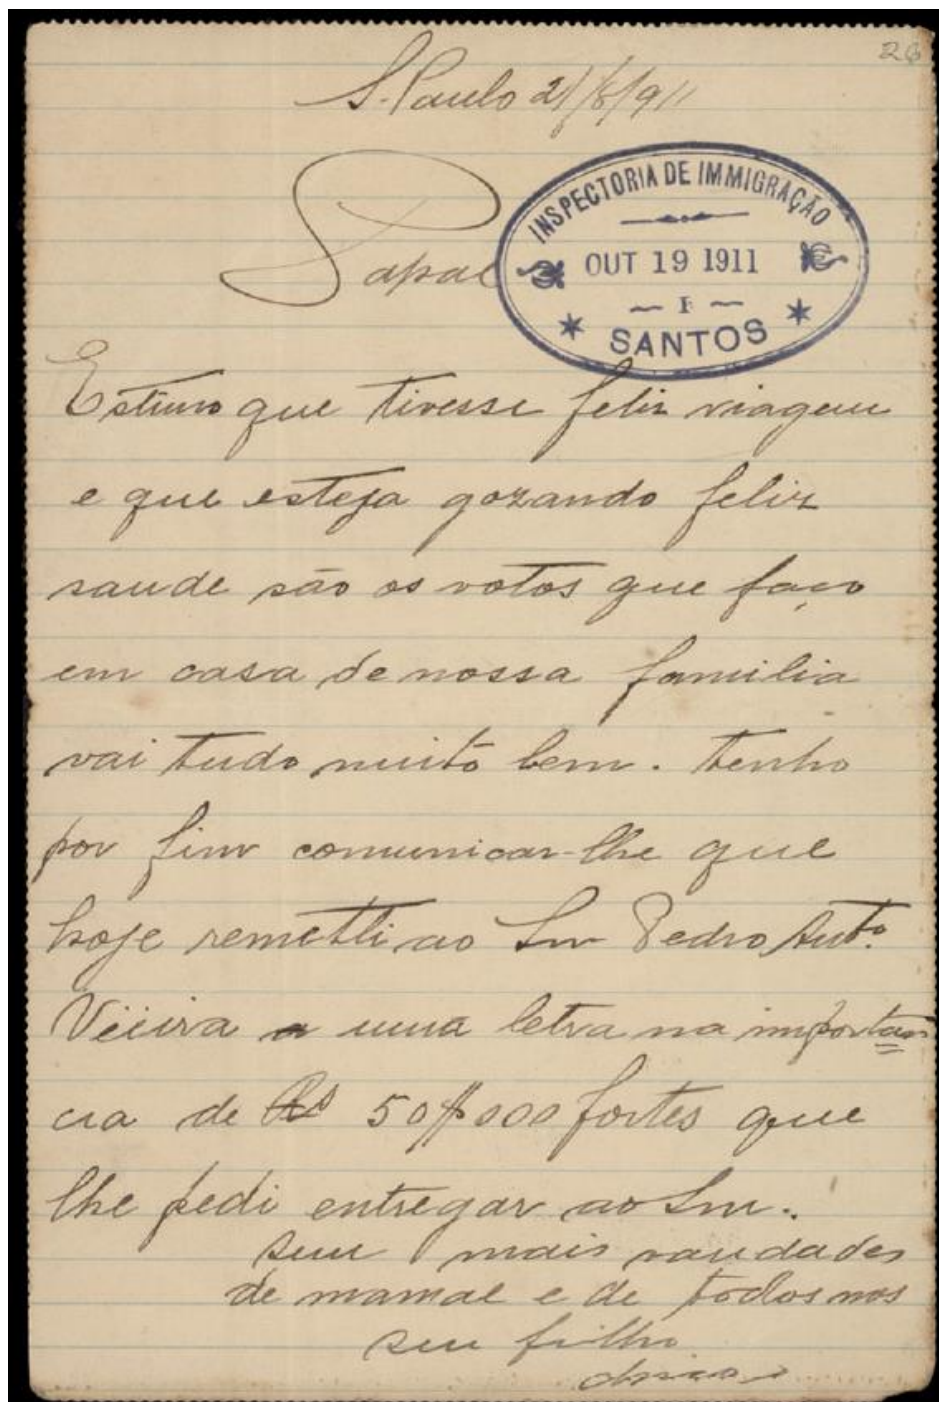 26
S. Paulo 21/8/911
Papae
INSPECTORIA DE IMMIGRAÇÃO
OUT 19 1911
SANTOS
Estimo que tivesse feliz viagem
e que esteja gozando feliz
saude são os votos que faço
em casa de nossa familia
vai tudo muito bem. tenho
por fim comunicar-lhe que
hoje remetti ao Snr Pedro Antº.
Vieira uma letra na importan
cia de Rs 50$000 fortes que
lhe pedi entregar ao Snr.
sem mais saudades
de mamae e de todos nos
seu filho